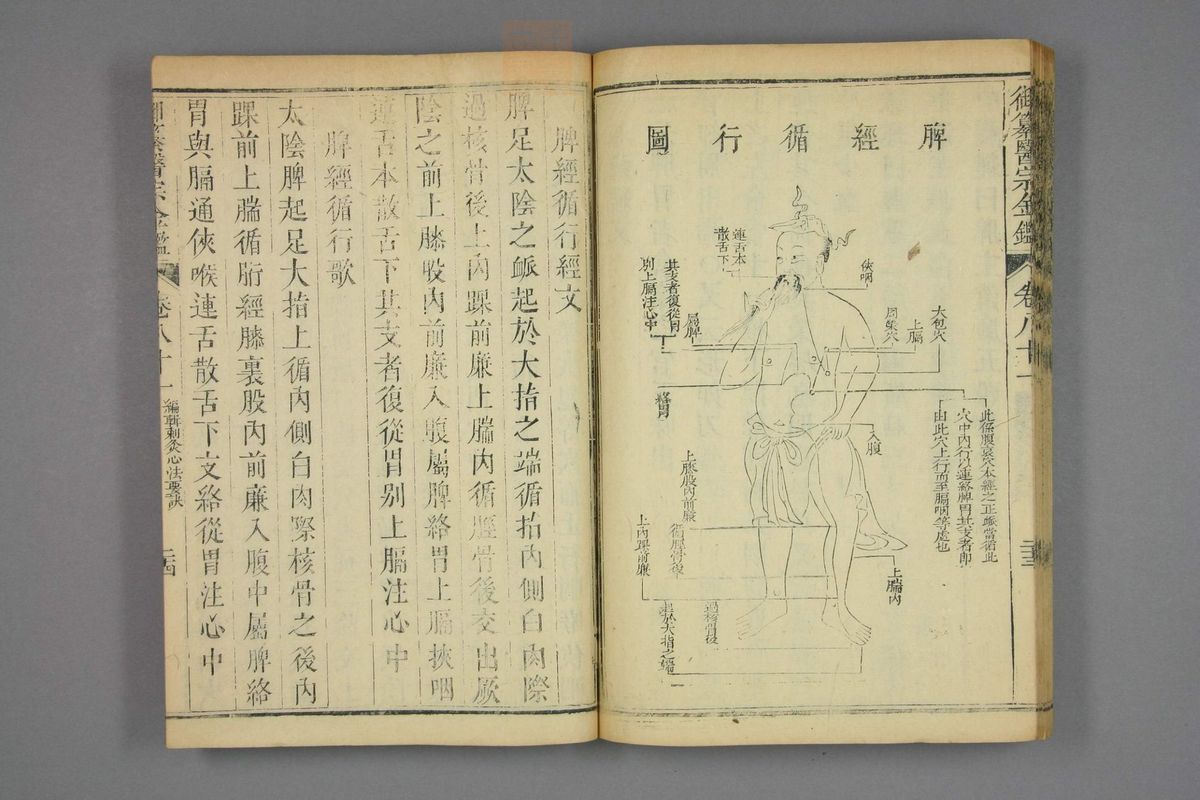 御纂醫宗金鑑
卷八十一
三十三
脾經循行圖
大包穴
上膈
周榮穴
俠咽
連舌本
散舌下
其支者復從胃
別上膈注心中
屬脾
絡胃
此係腹哀穴本經之正脈當循此
穴中內行以連絡脾胃其支者即
由此穴上行而至膈咽等處也
入腹
上膝股內前廉
循脛骨後
上內踝前廉
上腨內
過核骨後
起於大指之端
脾經循行經文
脾足太陰之脈起於大指之端循指內側白肉際
過核骨後上內踝前廉上腨內循脛骨後交出厥
陰之前上膝股內前廉入腹屬脾絡胃上膈挾咽
連舌本散舌下其支者復從胃別上膈注心中
脾經循行歌
太陰脾起足大指上循內側白肉際核骨之後內
踝前上腨循胻經膝裏股內前廉入腹中屬脾絡
胃與膈通俠喉連舌散舌下支絡從胃注心中
御纂醫宗金鑑
卷八十一
編輯刺灸心法要訣
三十四